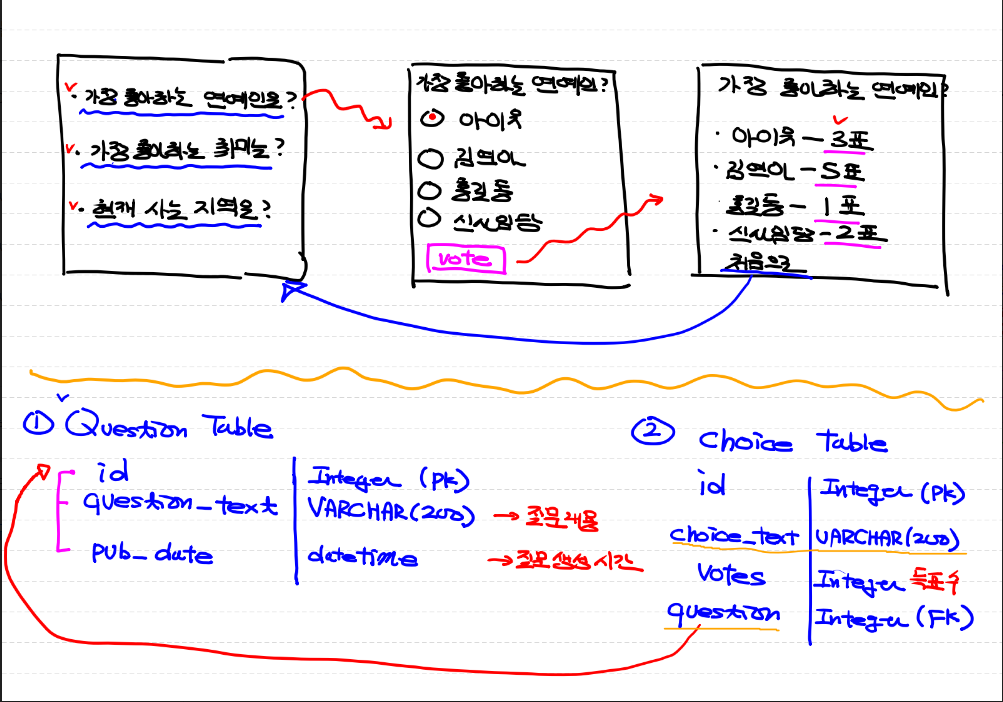 · 가장 좋아하는 연예인은?
· 가장 좋아하는 취미는?
· 현재 사는 지역은?
가장 좋아하는 연예인?
아이유
김연아
홍길동
신사임당
vote
가장 좋아하는 연예인?
· 아이유 - 3표
· 김연아 - 5표
· 홍길동 - 1표
· 신사임당 - 2표
처음으로
① Question Table
id Integer (PK)
question_text VARCHAR(200) → 질문내용
pub_date datetime → 질문생성시간
② Choice Table
id Integer (PK)
choice_text VARCHAR(200)
votes Integer 득표수
question Integer (FK)